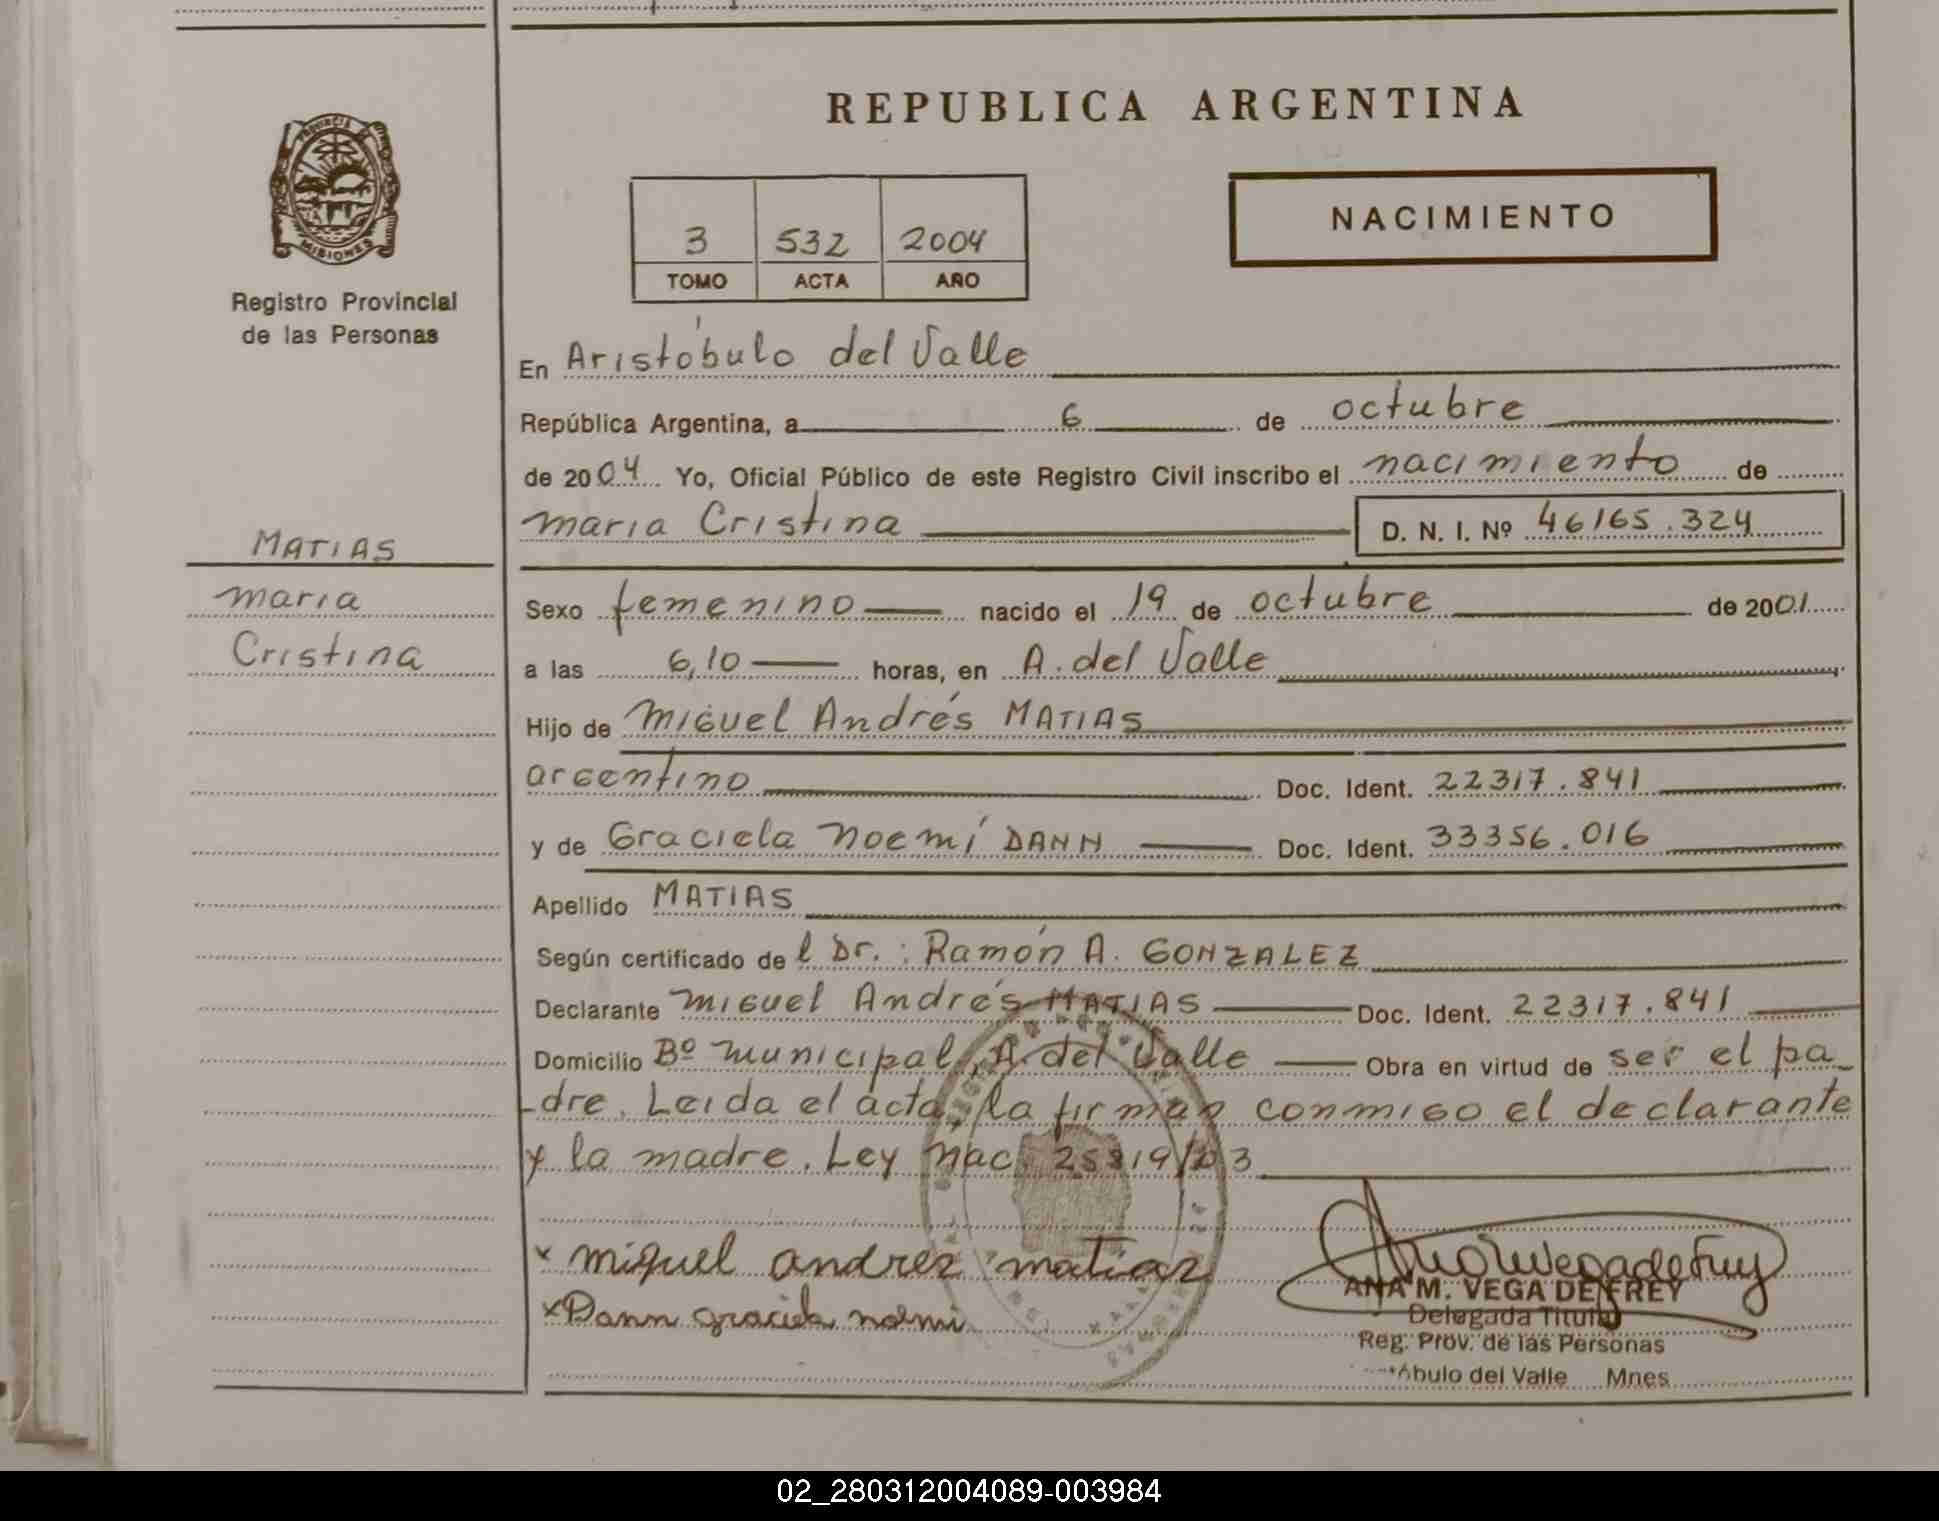 REPUBLICA ARGENTINA
PROVINCIA DE
MISIONES
Registro Provincial
de las Personas
3 532 2004
TOMO ACTA AÑO
NACIMIENTO
En Aristóbulo del Valle
República Argentina, a 6 de octubre
de 2004 Yo, Oficial Público de este Registro Civil inscribo el nacimiento de
maria Cristina D. N. I. Nº 46165.324
MATIAS
maria
Cristina
Sexo femenino nacido el 19 de octubre de 2001
a las 6,10 horas, en A. del Valle
Hijo de Miguel Andrés MATIAS
argentino Doc. Ident. 22317.841
y de Graciela Noemí DANN Doc. Ident. 33356.016
Apellido MATIAS
Según certificado de l Dr. : Ramón A. GONZALEZ
Declarante Miguel Andrés MATIAS Doc. Ident. 22317.841
Domicilio Bº Municipal, A. del Valle Obra en virtud de ser el pa_
_dre. Leida el acta, la firman conmigo el declarante
y la madre. Ley Nac. 25819/03
x miguel andrez matiaz
x Dann graciela noemi
Ana M Vega de Frey
ANA M. VEGA DE FREY
Delegada Titular
Reg. Prov. de las Personas
óbulo del Valle Mnes
02_280312004089-003984